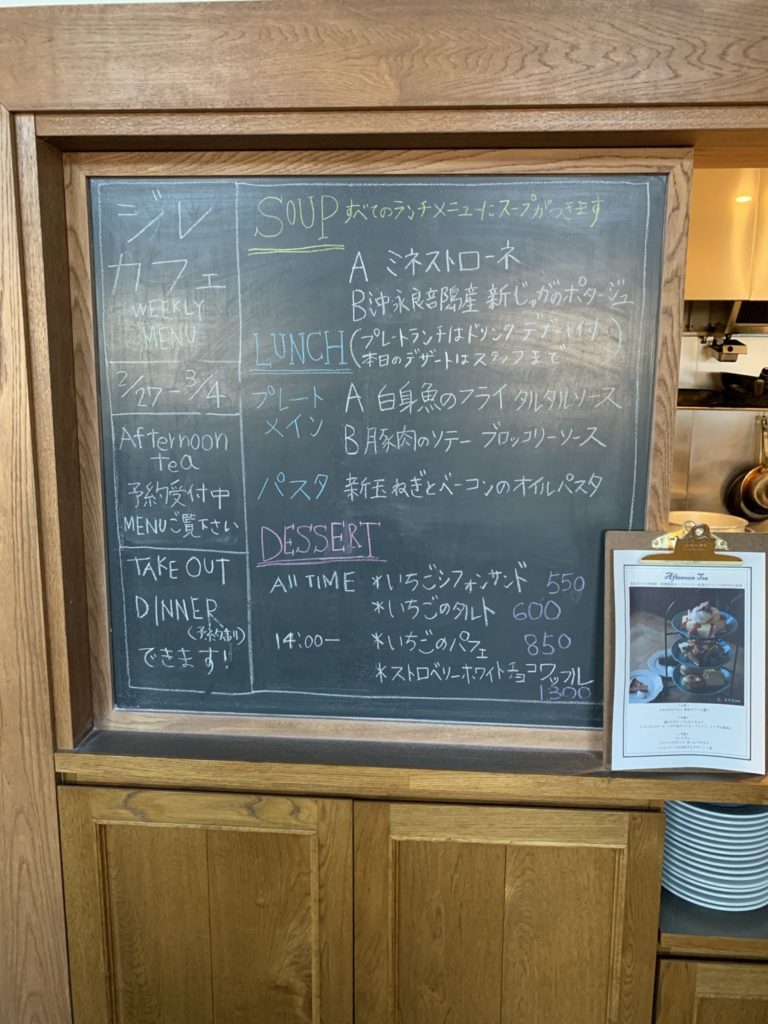 ジレ
カフェ
WEEKLY
MENU
2/27 - 3/4
Afternoon
tea
予約受付中
MENUご覧下さい
TAKE OUT
DINNER
できます!
SOUP すべてのランチメニューにスープがつきます
A ミネストローネ
B 沖永良部島産 新じゃがのポタージュ
LUNCH (プレートランチはドリンク デザート付
本日のデザートはスタッフまで)
プレート
メイン
A 白身魚のフライ タルタルソース
B 豚肉のソテー ブロッコリーソース
パスタ 新玉ねぎとベーコンのオイルパスタ
DESSERT
All TIME *いちごシフォンサンド 550
*いちごのタルト 600
14:00— *いちごのパフェ 850
*ストロベリーホワイトチョコワッフル
1300
Afternoon Tea